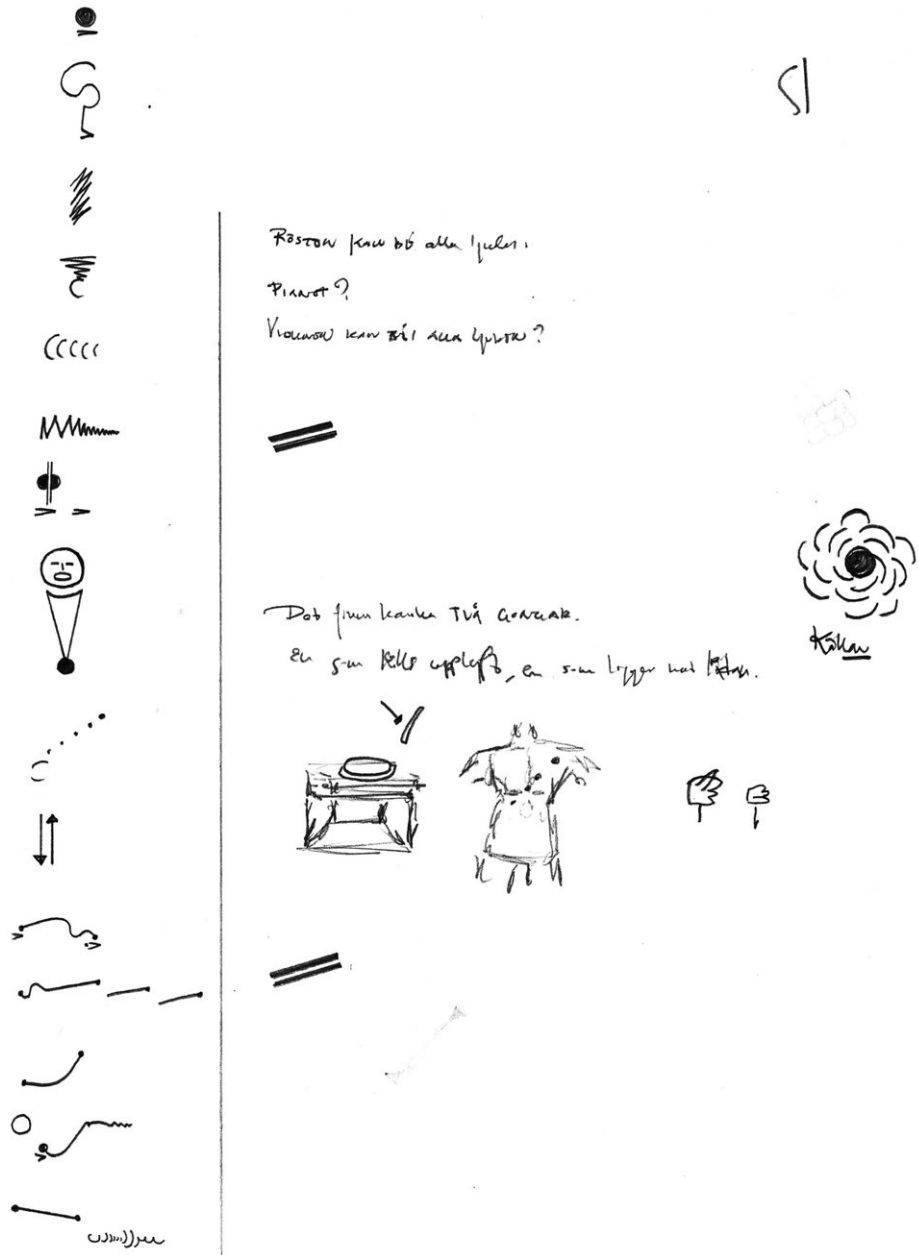 Rösten kan bli alla ljuden.
Pianot?
Violinen kan bli alla ljuden?
Det finns kanske TVÅ GONGAR.
En som upplyft, en som ligger mot